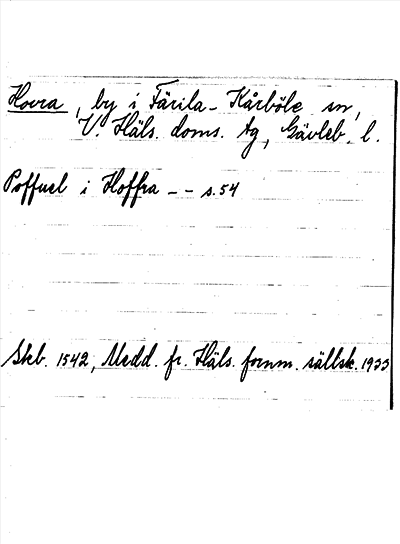 Hovra, by i Färila-Kårböle sn,
V. Häls. doms. tg, Gävleb. l.
Poffuel i Hoffra -- s. 54
Skb. 1542, Medd. fr. Häls. fornm. sällsk. 1933